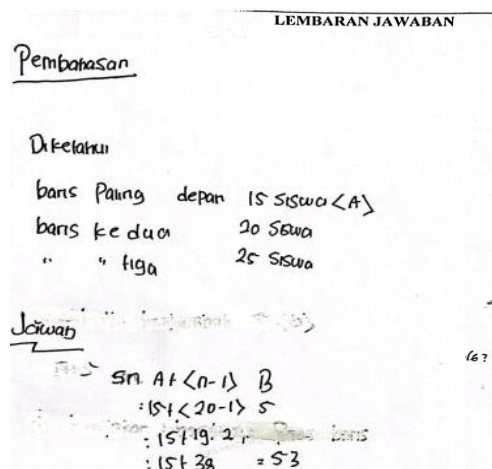 LEMBARAN JAWABAN
Pembahasan
Diketahui
baris Paling depan 15 siswa <A>
baris kedua 20 siswa
" " tiga 25 siswa
Jawab
Sn. A + <n-1> B
: 15 + <20-1> 5
: 15 + 19. 2
: 15 + 38 = 53